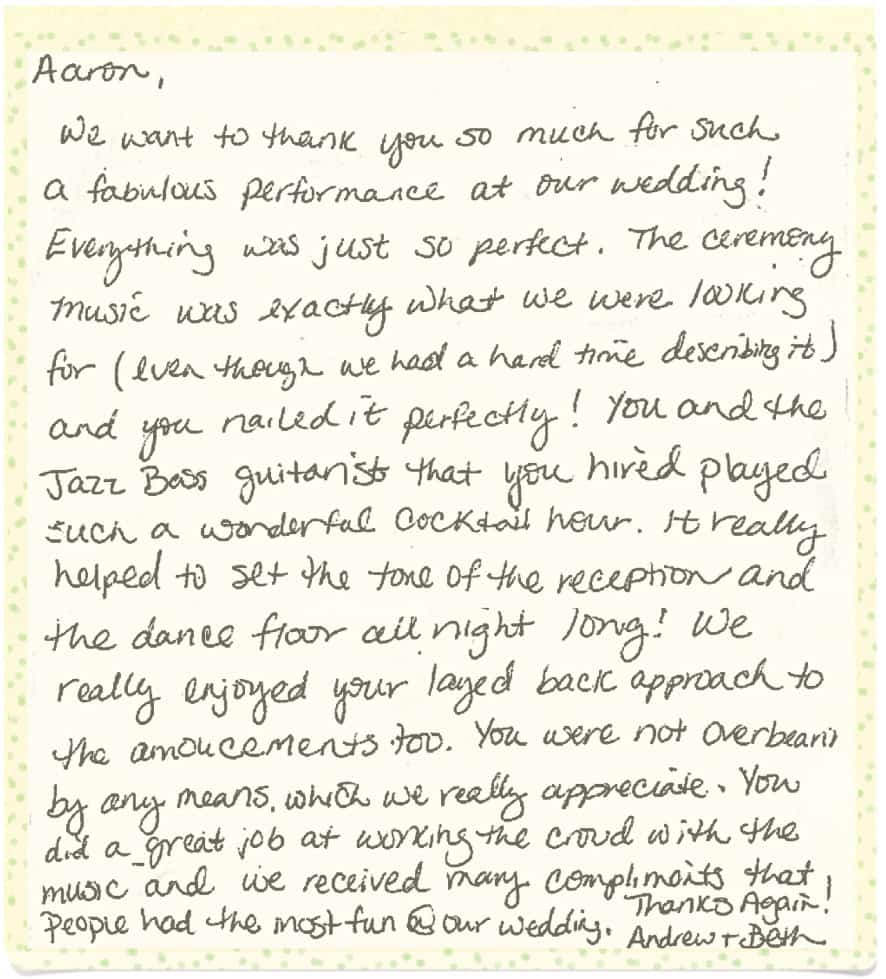 Aaron,
We want to thank you so much for such
a fabulous performance at our wedding!
Everything was just so perfect. The ceremony
music was exactly what we were looking
for (even though we had a hard time describing it)
and you nailed it perfectly! You and the
Jazz Bass guitarist that you hired played
such a wonderful cocktail hour. It really
helped to set the tone of the reception and
the dance floor all night long! We
really enjoyed your layed back approach to
the amoucements too. You were not overbearin
by any means, which we really appreciate. You
did a great job at working the croud with the
music and we received many compliments that
People had the most fun @ our wedding.
Thanks Again!
Andrew + Beth